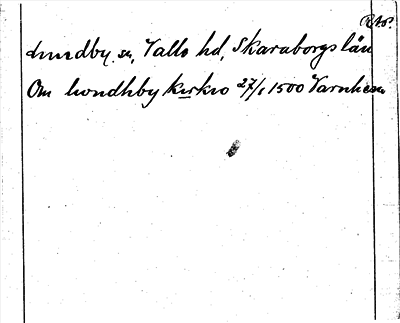 Lundby sn, Valle hd, Skaraborgs län
Om londhby kirkio 27/1 1500 Varnhem